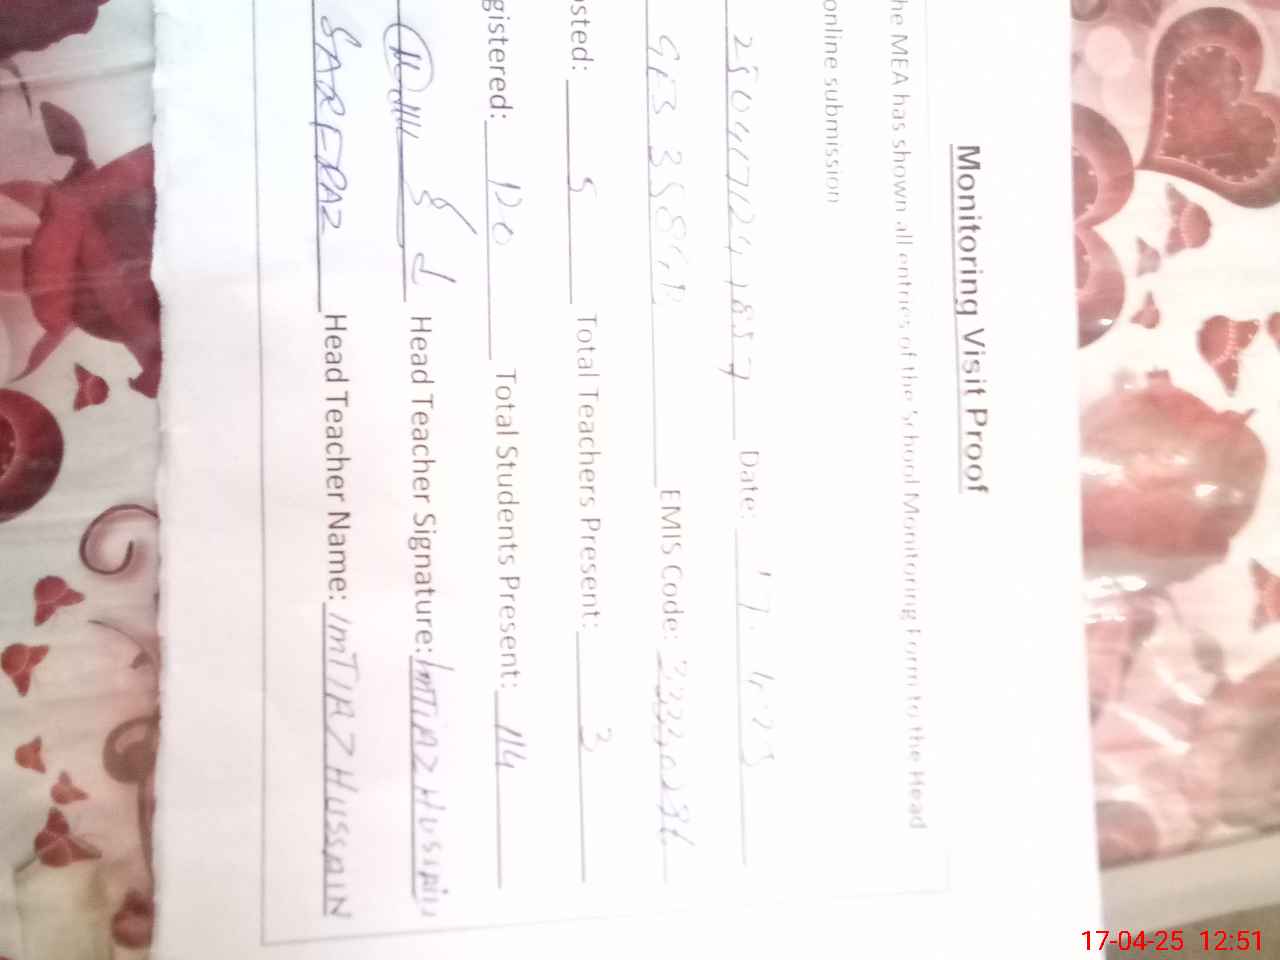 Monitoring Visit Proof
he MEA has shown all entries of the School Monitoring Form to the Head
online submission
Date: 17.
EMIS Code:
osted: 5 Total Teachers Present: 3
gistered: 120 Total Students Present: 114
Head Teacher Signature: IMTIAZ HUSSAIN
SARFRAZ Head Teacher Name: IMTIAZ HUSSAIN
17-04-25 12:51